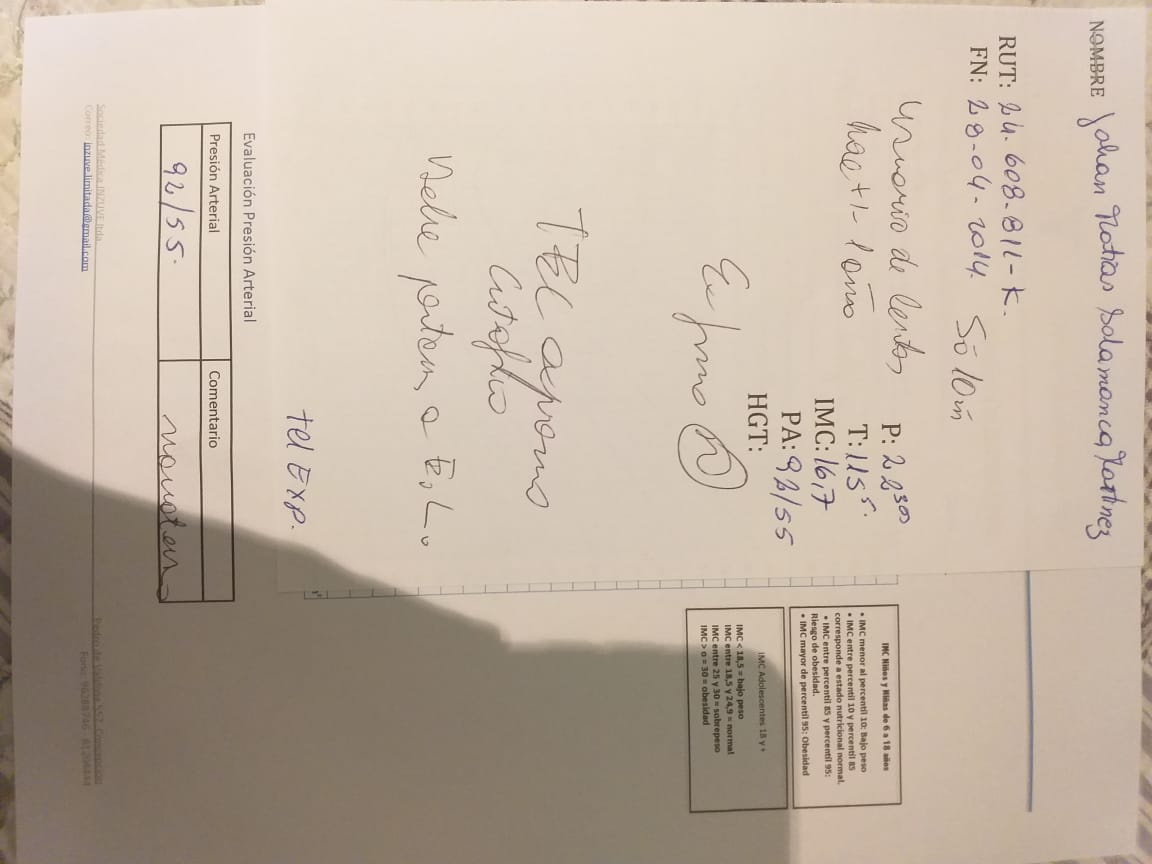 NOMBRE Johan Matias Salamanca Martinez
RUT: 24.608.811-K.
FN: 28-04-2014. 5ā 10m
usuario de lentes
hace +/- 1 año
P: 22300
T: 115 5.
IMC: 16,7
PA: 92/55
HGT:
Ex fisico N
TEL
Eutofico
Debe a E.L.
tel Exp.
IMC Niños y Niñas de 6 a 18 años
• IMC menor al percentil 10: Bajo peso
• IMC entre percentil 10 y percentil 85
corresponde a estado nutricional normal.
• IMC entre percentil 85 y percentil 95:
Riesgo de obesidad.
• IMC mayor de percentil 95: Obesidad
IMC Adolescentes 18 y +
IMC < 18,5 = bajo peso
IMC entre 18,5 y 24,9 = normal
IMC entre 25 y 30 = sobrepeso
IMC > o = 30 = obesidad
Evaluación Presión Arterial
Presión Arterial Comentario
92/55. normotenso
Sociedad Médica INZUVE ltda. Pedro de Valdivia 557, Concepción
Correo: inzuve.limitada@gmail.com Fono: 96288746 - 81204444